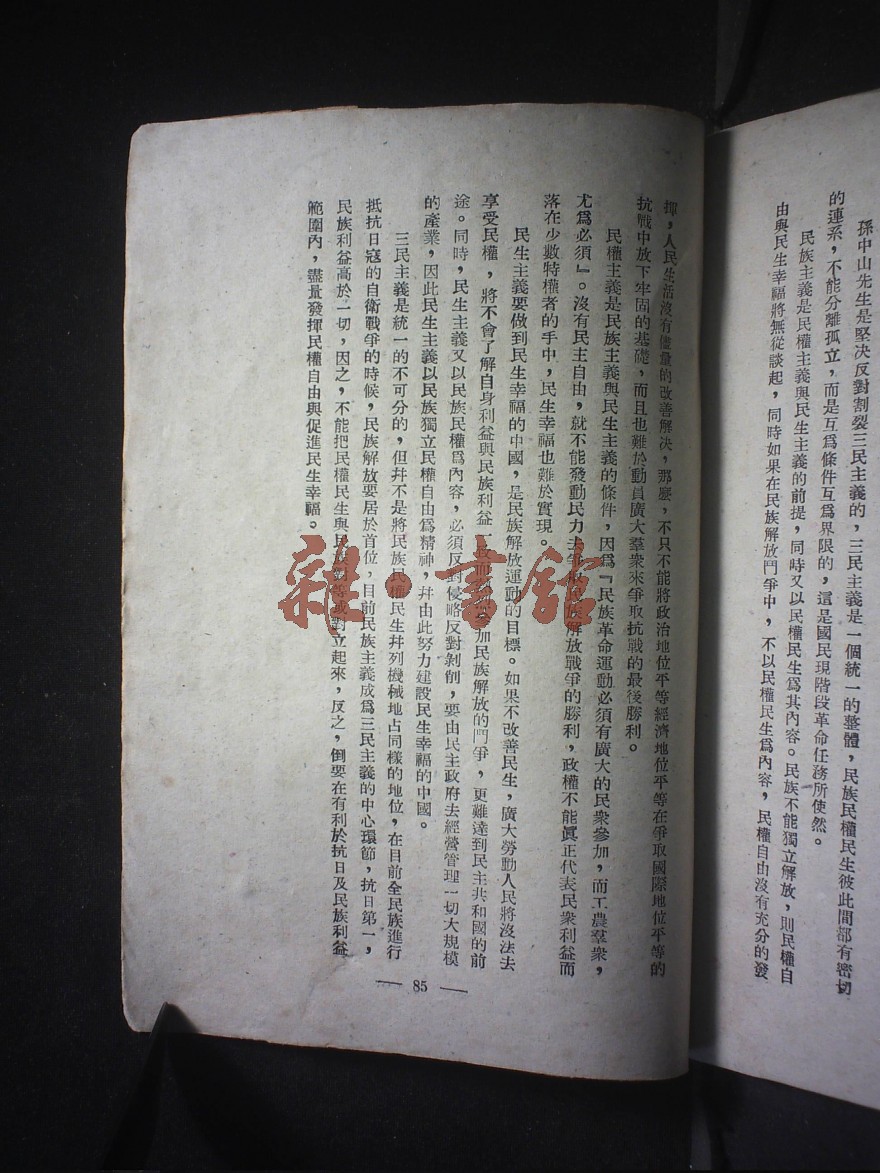 孫中山先生是堅决反對割裂三民主義的，三民主義是一個統一的整體，民族民權民生彼此間都有密切
的連系，不能分離孤立，而是互爲條件互爲界限的，這是國民現階段革命任務所使然。
民族主義是民權主義與民生主義的前提，同時又以民權民生爲其內容。民族不能獨立解放，則民權自
由與民生幸福將無從談起，同時如果在民族解放鬥爭中，不以民權民生爲內容，民權自由沒有充分的發
揮，人民生活沒有儘量的改善解决，那麽，不只不能將政治地位平等經濟地位平等在爭取國際地位平等的
抗戰中放下牢固的基礎，而且也難於動員廣大羣衆來爭取抗戰的最後勝利。
民權主義是民族主義與民生主義的條件，因爲『民族革命運動必須有廣大的民衆參加，而工農羣衆，
尤爲必須』。沒有民主自由，就不能發動民力去爭取民族解放戰爭的勝利，政權不能眞正代表民衆利益而
落在少數特權者的手中，民生幸福也難於實現。
民生主義要做到民生幸福的中國，是民族解放運動的目標。如果不改善民生，廣大勞動人民將沒法去
享受民權，將不會了解自身利益與民族利益一致而加民族解放的鬥爭，更難達到民主共和國的前
途。同時，民生主義又以民族民權爲內容，必須反對侵略反對剝削，要由民主政府去經營管理一切大規模
的產業，因此民生主義以民族獨立民權自由爲精神，幷由此努力建設民生幸福的中國。
三民主義是統一的不可分的，但幷不是將民族民權民生幷列機械地占同樣的地位，在目前全民族進行
抵抗日寇的自衛戰爭的時候，民族解放要居於首位，目前民族主義成爲三民主義的中心環節，抗日第一，
民族利益高於一切，因之，不能把民權民生與民族對等或對立起來，反之，倒要在有利於抗日及民族利益
範圍內，盡量發揮民權自由與促進民生幸福。
— 85 —
雜·書館